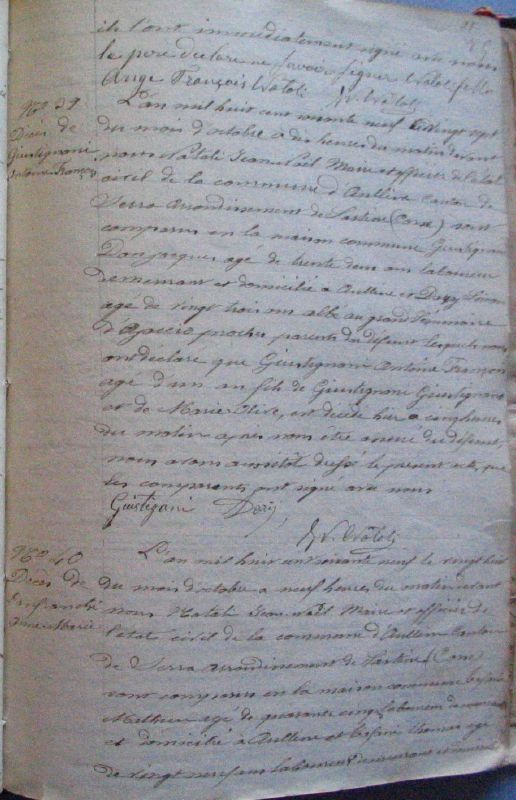 ils l'ont immédiatement signé avec nous
le père déclare ne savoir signer
Ange François Natali J. N. Natalj
No 39
Décès de
Giustignani
Antoine François
L'an mil huit cent soixante neuf le vingt sept
du mois d'octobre à dix heures du matin devant
nous Natali Jean Noël Maire et officier de l'état
civil de la commune d'Aullène canton de
Serra arrondissement de Sartène (Corse) sont
comparus en la maison commune Giustignani
Don Jacques agé de trente deux ans laboureur
demeurant et domicilié à Aullène et
agé de vingt trois ans abbé au grand Séminaire
d'Ajaccio proches parents du défunt lesquels nous
ont déclaré que Giustignani Antoine François
agé d'un an fils de Giustignani Giustignano
et de Marie, est décédé hier à cinq heures
du matin après nous être assuré du défunt,
nous avons aussitôt dressé le présent acte, que
les comparants ont signé avec nous
Giustignani
J. N. Natalj
No 40
Décès de
L'an mil huit cent soixante neuf le vingt huit
du mois d'octobre à neuf heures du matin devant
nous Natali Jean Noël Maire et officier de
l'état civil de la commune d'Aullène canton
de Serra arrondissement de Sartène (Corse)
sont comparus en la maison commune
Mathieu agé de quarante cinq laboureur demeurant
et domicilié à Aullène et Thomas agé
de vingt neuf ans laboureur demeurant et